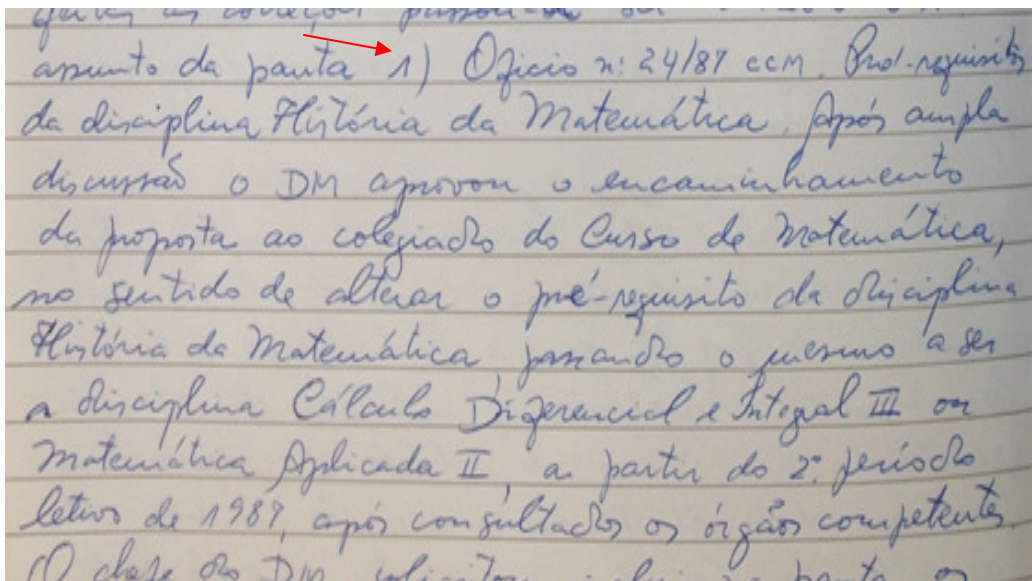 assunto da pauta 1) Ofício nº 24/87 CCM. Pré-requisito
da disciplina História da Matemática. Após ampla
discussão o DM aprovou o encaminhamento
da proposta ao colegiado do Curso de Matemática,
no sentido de alterar o pré-requisito da disciplina
História da Matemática, passando o mesmo a ser
a disciplina Cálculo Diferencial e Integral III ou
Matemática Aplicada II, a partir do 2º período
letivo de 1987, após consultados os órgãos competentes.
O chefe do DM solicitou pauta os